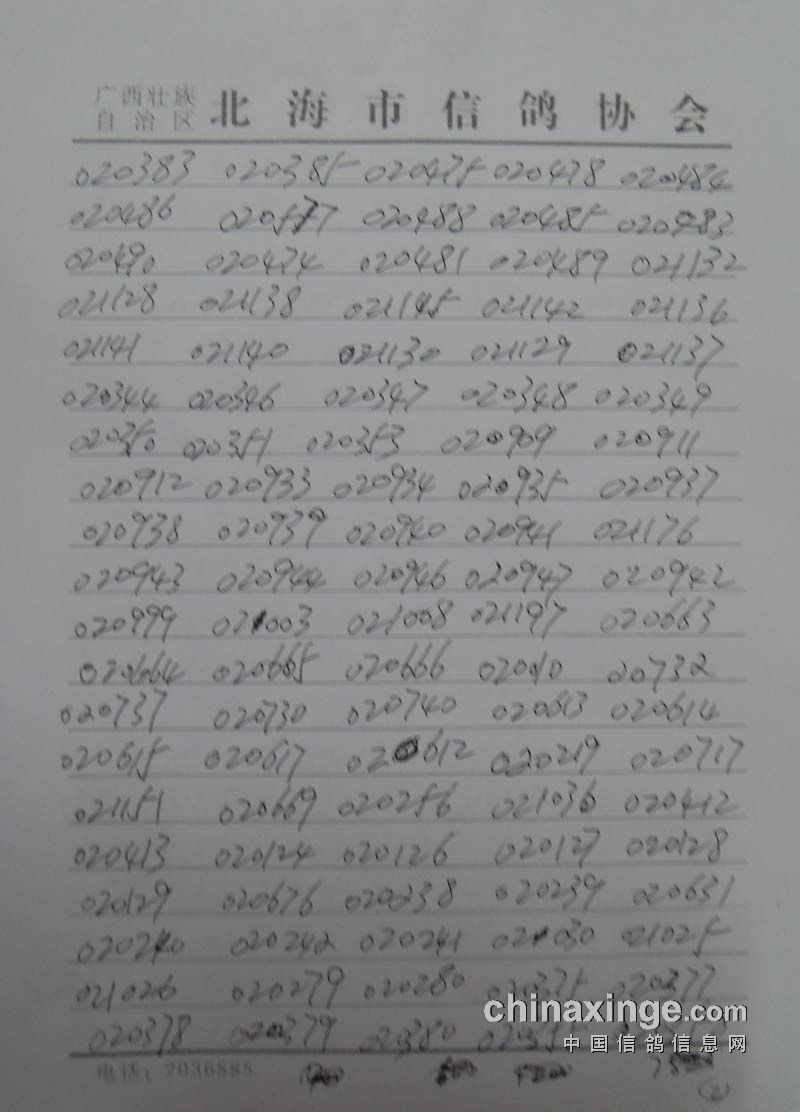 广西壮族
自治区 北海市信鸽协会
020383 020385 020475 020478 020484
020486 020577 020488 020485 020983
020490 020474 020481 020489 021132
021128 021138 021145 021142 021136
021141 021140 021130 021129 021137
020344 020346 020347 020348 020349
020350 020351 020353 020909 020911
020912 020933 020934 020935 020937
020938 020939 020940 020941 021176
020943 020944 020946 020947 020942
020999 021003 021008 021197 020663
020664 020665 020666 020010 20732
020737 020730 020740 020613 020614
020615 020617 020612 020219 020717
021151 020669 020256 021036 020412
020413 020124 020126 020127 020128
020129 020676 020238 020239 020631
020240 020242 020241 021030 021025
021026 020279 020280 020375 020377
chinaxinge.com
020378 020379 020380
中国信鸽信息网
电话：2036885
2